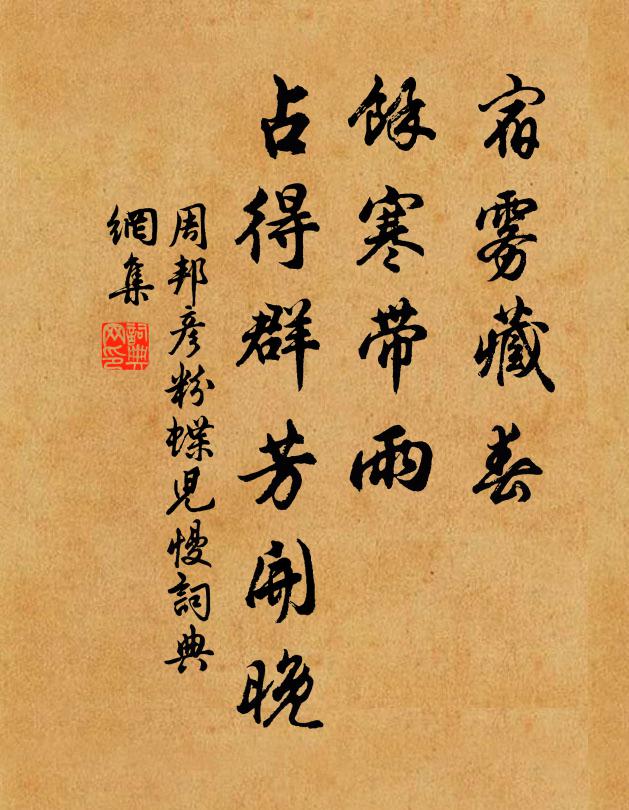 宿雾藏春
餘寒帶雨
占得群芳開晚
周邦彦粉蝶児慢詞典
網集
詞典
网印